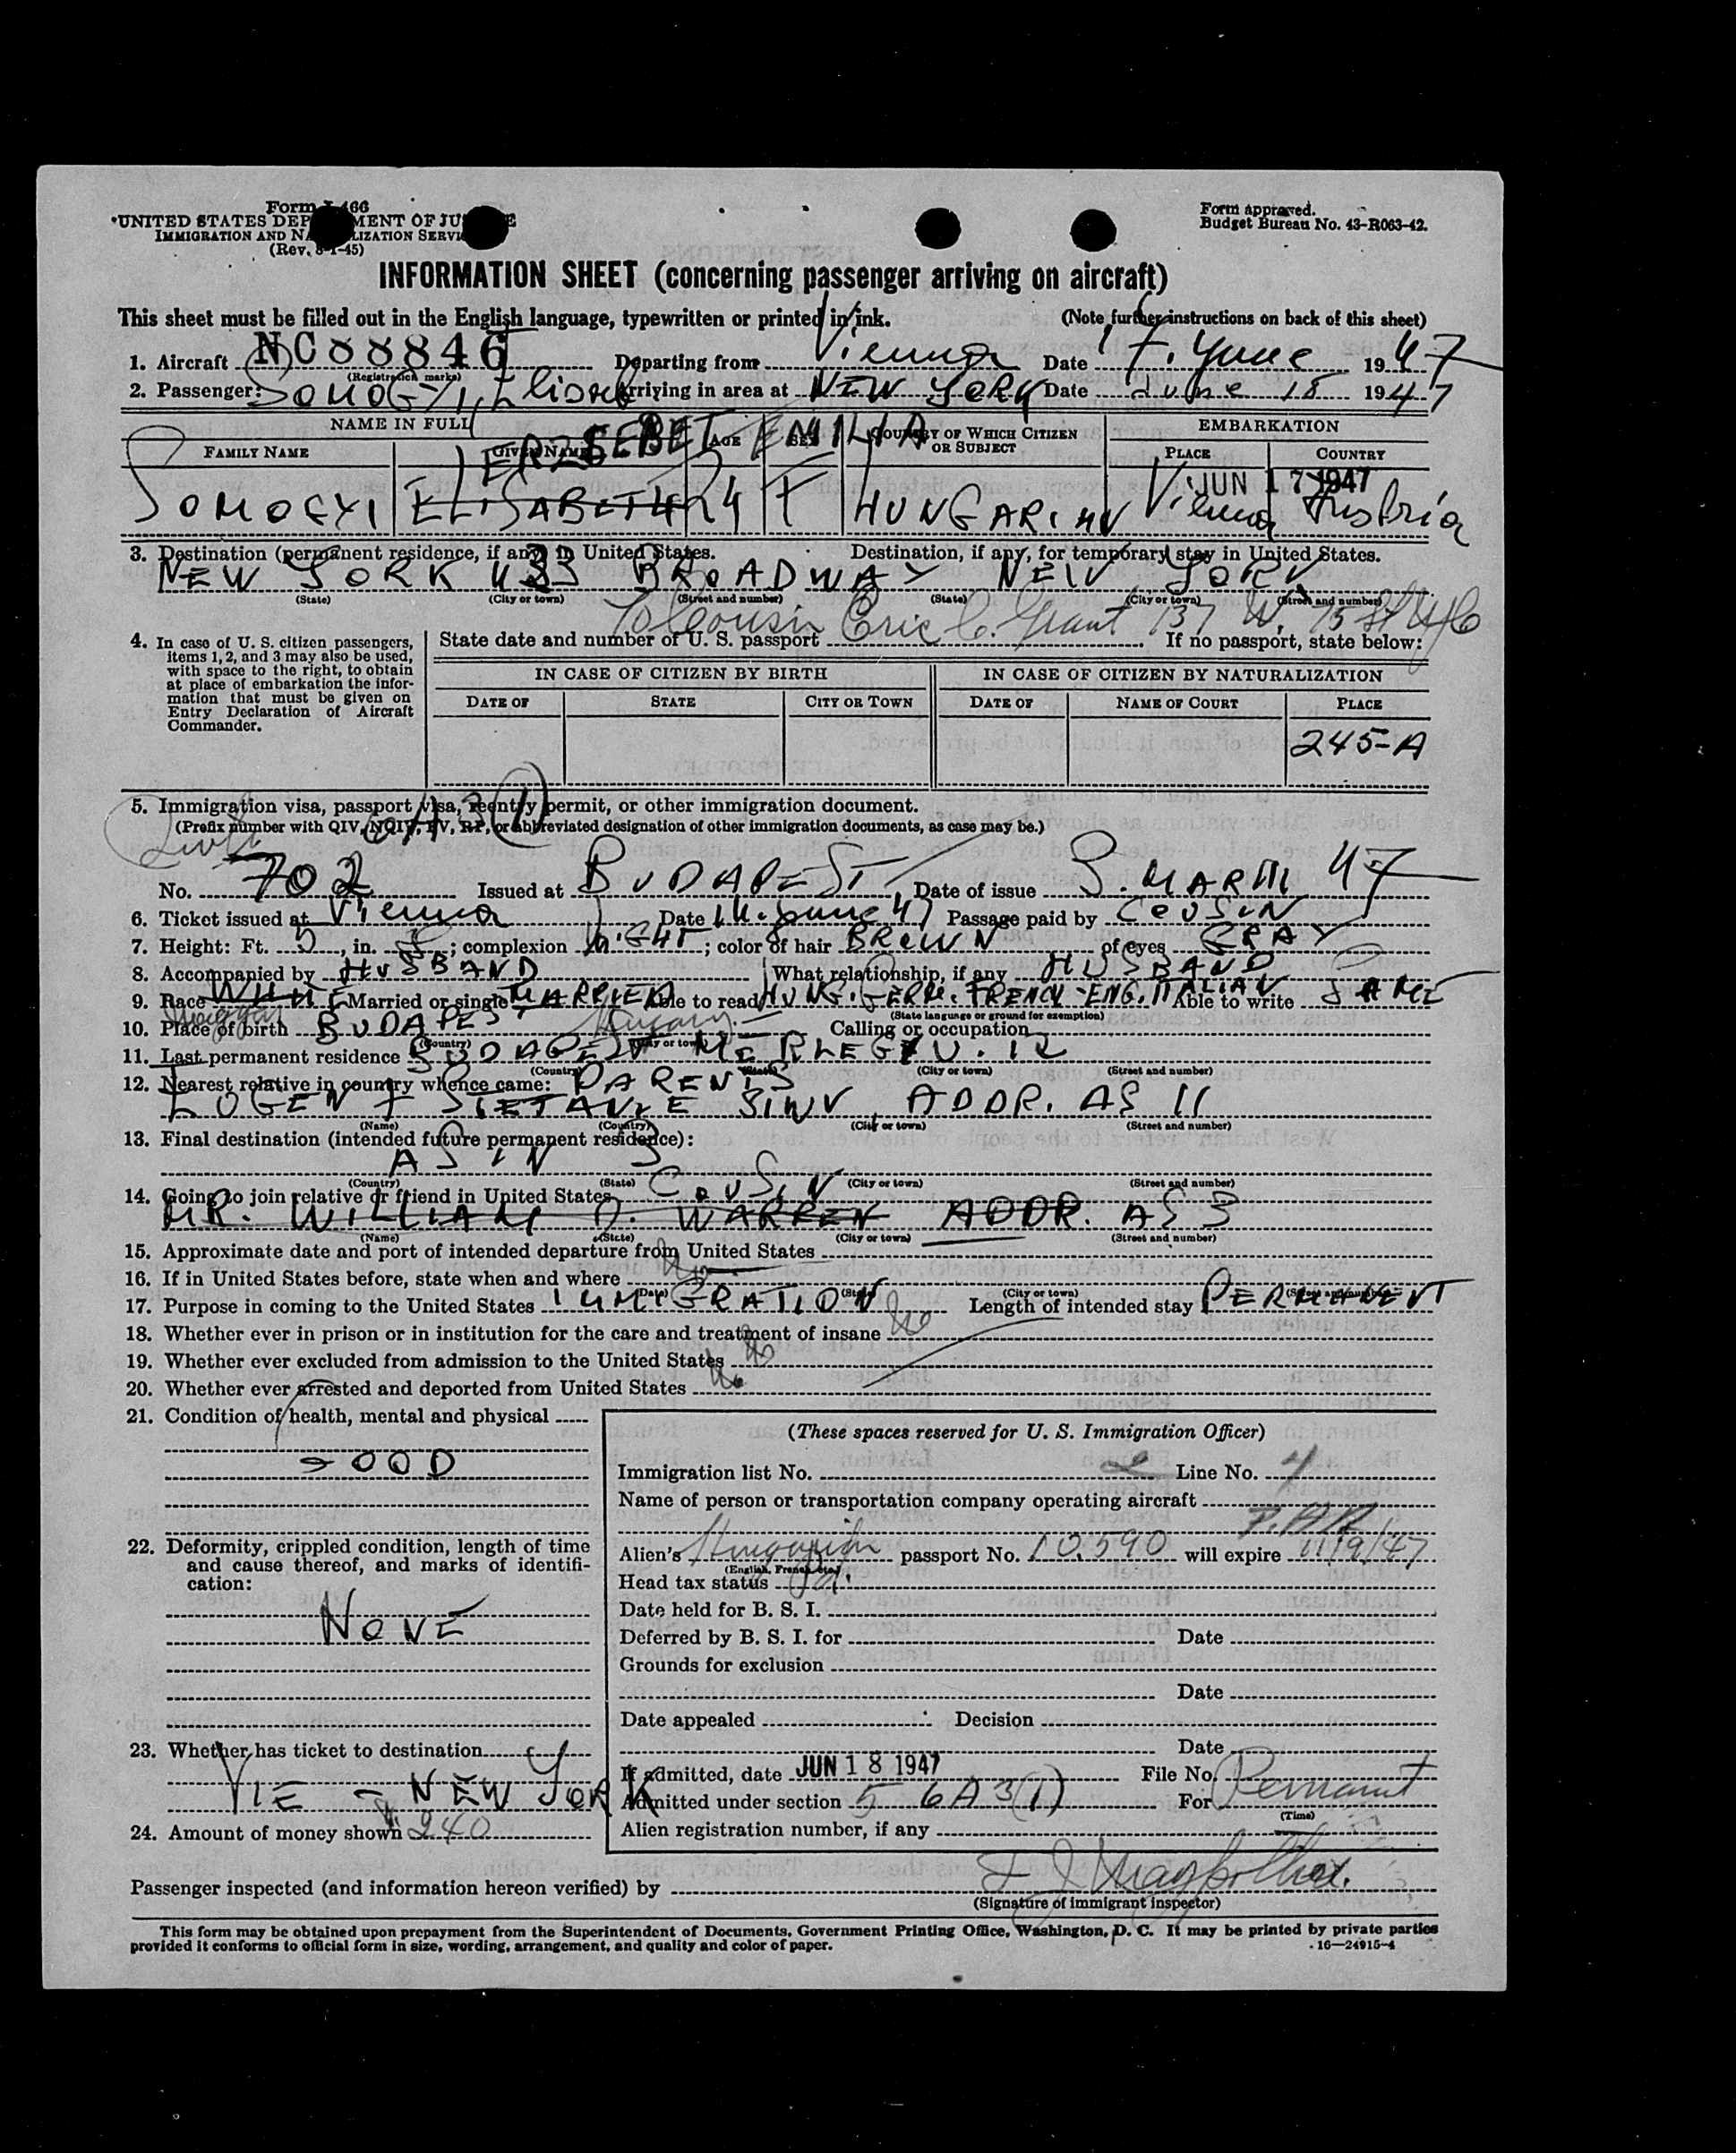 Form I-466
UNITED STATES DEPARTMENT OF JUSTICE
IMMIGRATION AND NATURALIZATION SERVICE
(Rev. 8-1-45)
Form approved.
Budget Bureau No. 43-R063-42.
INFORMATION SHEET (concerning passenger arriving on aircraft)
This sheet must be filled out in the English language, typewritten or printed in ink. (Note further instructions on back of this sheet)
1. Aircraft NC88846 Departing from Vienna Date 17. June 1947
(Registration marks)
2. Passenger: SOMOGYI, Arriving in area at NEW YORK Date June 18 1947
NAME IN FULL AGE SEX COUNTRY OF WHICH CITIZEN OR SUBJECT EMBARKATION
FAMILY NAME GIVEN NAME PLACE COUNTRY
ERZSEBET EMILIA
JUN 17 1947
SOMOGYI ELISABETH 24 F HUNGARIAN Vienna Austria
3. Destination (permanent residence, if any) in United States. Destination, if any, for temporary stay in United States.
NEW YORK 433 BROADWAY NEW YORK
(State) (City or town) (Street and number) (State) (City or town) (Street and number)
To Cousin Eric C. Grant 137 W. 75 St NYC
4. In case of U. S. citizen passengers, items 1, 2, and 3 may also be used, with space to the right, to obtain at place of embarkation the information that must be given on Entry Declaration of Aircraft Commander.
State date and number of U. S. passport If no passport, state below:
IN CASE OF CITIZEN BY BIRTH IN CASE OF CITIZEN BY NATURALIZATION
DATE OF STATE CITY OR TOWN DATE OF NAME OF COURT PLACE
245-A
5. Immigration visa, passport visa, reentry permit, or other immigration document.
6A3(1)
(Prefix number with QIV, NQIV, PV, RP, or abbreviated designation of other immigration documents, as case may be.)
No. 702 Issued at BUDAPEST Date of issue 47
6. Ticket issued at Vienna Date 14. June 47 Passage paid by COUSIN
7. Height: Ft. 5, in. ; complexion LIGHT; color of hair BROWN of eyes GRAY
8. Accompanied by HUSBAND What relationship, if any HUSBAND
9. Race WHITE Married or single MARRIED Able to read HUNG. GERM. FRENCH-ENG. ITALIAN Able to write SAME
Magyar
(State language or ground for exemption)
10. Place of birth BUDAPEST Hungary Calling or occupation
(Country) (City or town)
11. Last permanent residence BUDAPEST MERLEG U. 12
(Country) (State) (City or town) (Street and number)
12. Nearest relative in country whence came: PARENTS
ADDR. AS 11
(Name) (Country) (City or town) (Street and number)
13. Final destination (intended future permanent residence):
AS IN 3
(Country) (State) (City or town) (Street and number)
14. Going to join relative or friend in United States COUSIN
MR. WILLIAM D. WARREN ADDR. AS 3
(Name) (State) (City or town) (Street and number)
15. Approximate date and port of intended departure from United States
16. If in United States before, state when and where No
(Date) (State) (City or town) (Street and number)
17. Purpose in coming to the United States IMMIGRATION Length of intended stay PERMANENT
18. Whether ever in prison or in institution for the care and treatment of insane No
19. Whether ever excluded from admission to the United States No
20. Whether ever arrested and deported from United States No
21. Condition of health, mental and physical
GOOD
22. Deformity, crippled condition, length of time and cause thereof, and marks of identification:
NONE
23. Whether has ticket to destination
VIE - NEW YORK
24. Amount of money shown $240
(These spaces reserved for U. S. Immigration Officer)
Immigration list No. 2 Line No. 4
Name of person or transportation company operating aircraft
Alien's Hungarian passport No. 10,590 will expire 11/9/47
(English, French, etc.)
Head tax status Pd.
Date held for B. S. I.
Deferred by B. S. I. for Date
Grounds for exclusion
Date
Date appealed Decision
Date
If admitted, date JUN 18 1947 File No.
Admitted under section 5 6A3(1) For Permanent
(Time)
Alien registration number, if any
Passenger inspected (and information hereon verified) by
(Signature of immigrant inspector)
This form may be obtained upon prepayment from the Superintendent of Documents, Government Printing Office, Washington, D. C. It may be printed by private parties
provided it conforms to official form in size, wording, arrangement, and quality and color of paper. 16—24915-4